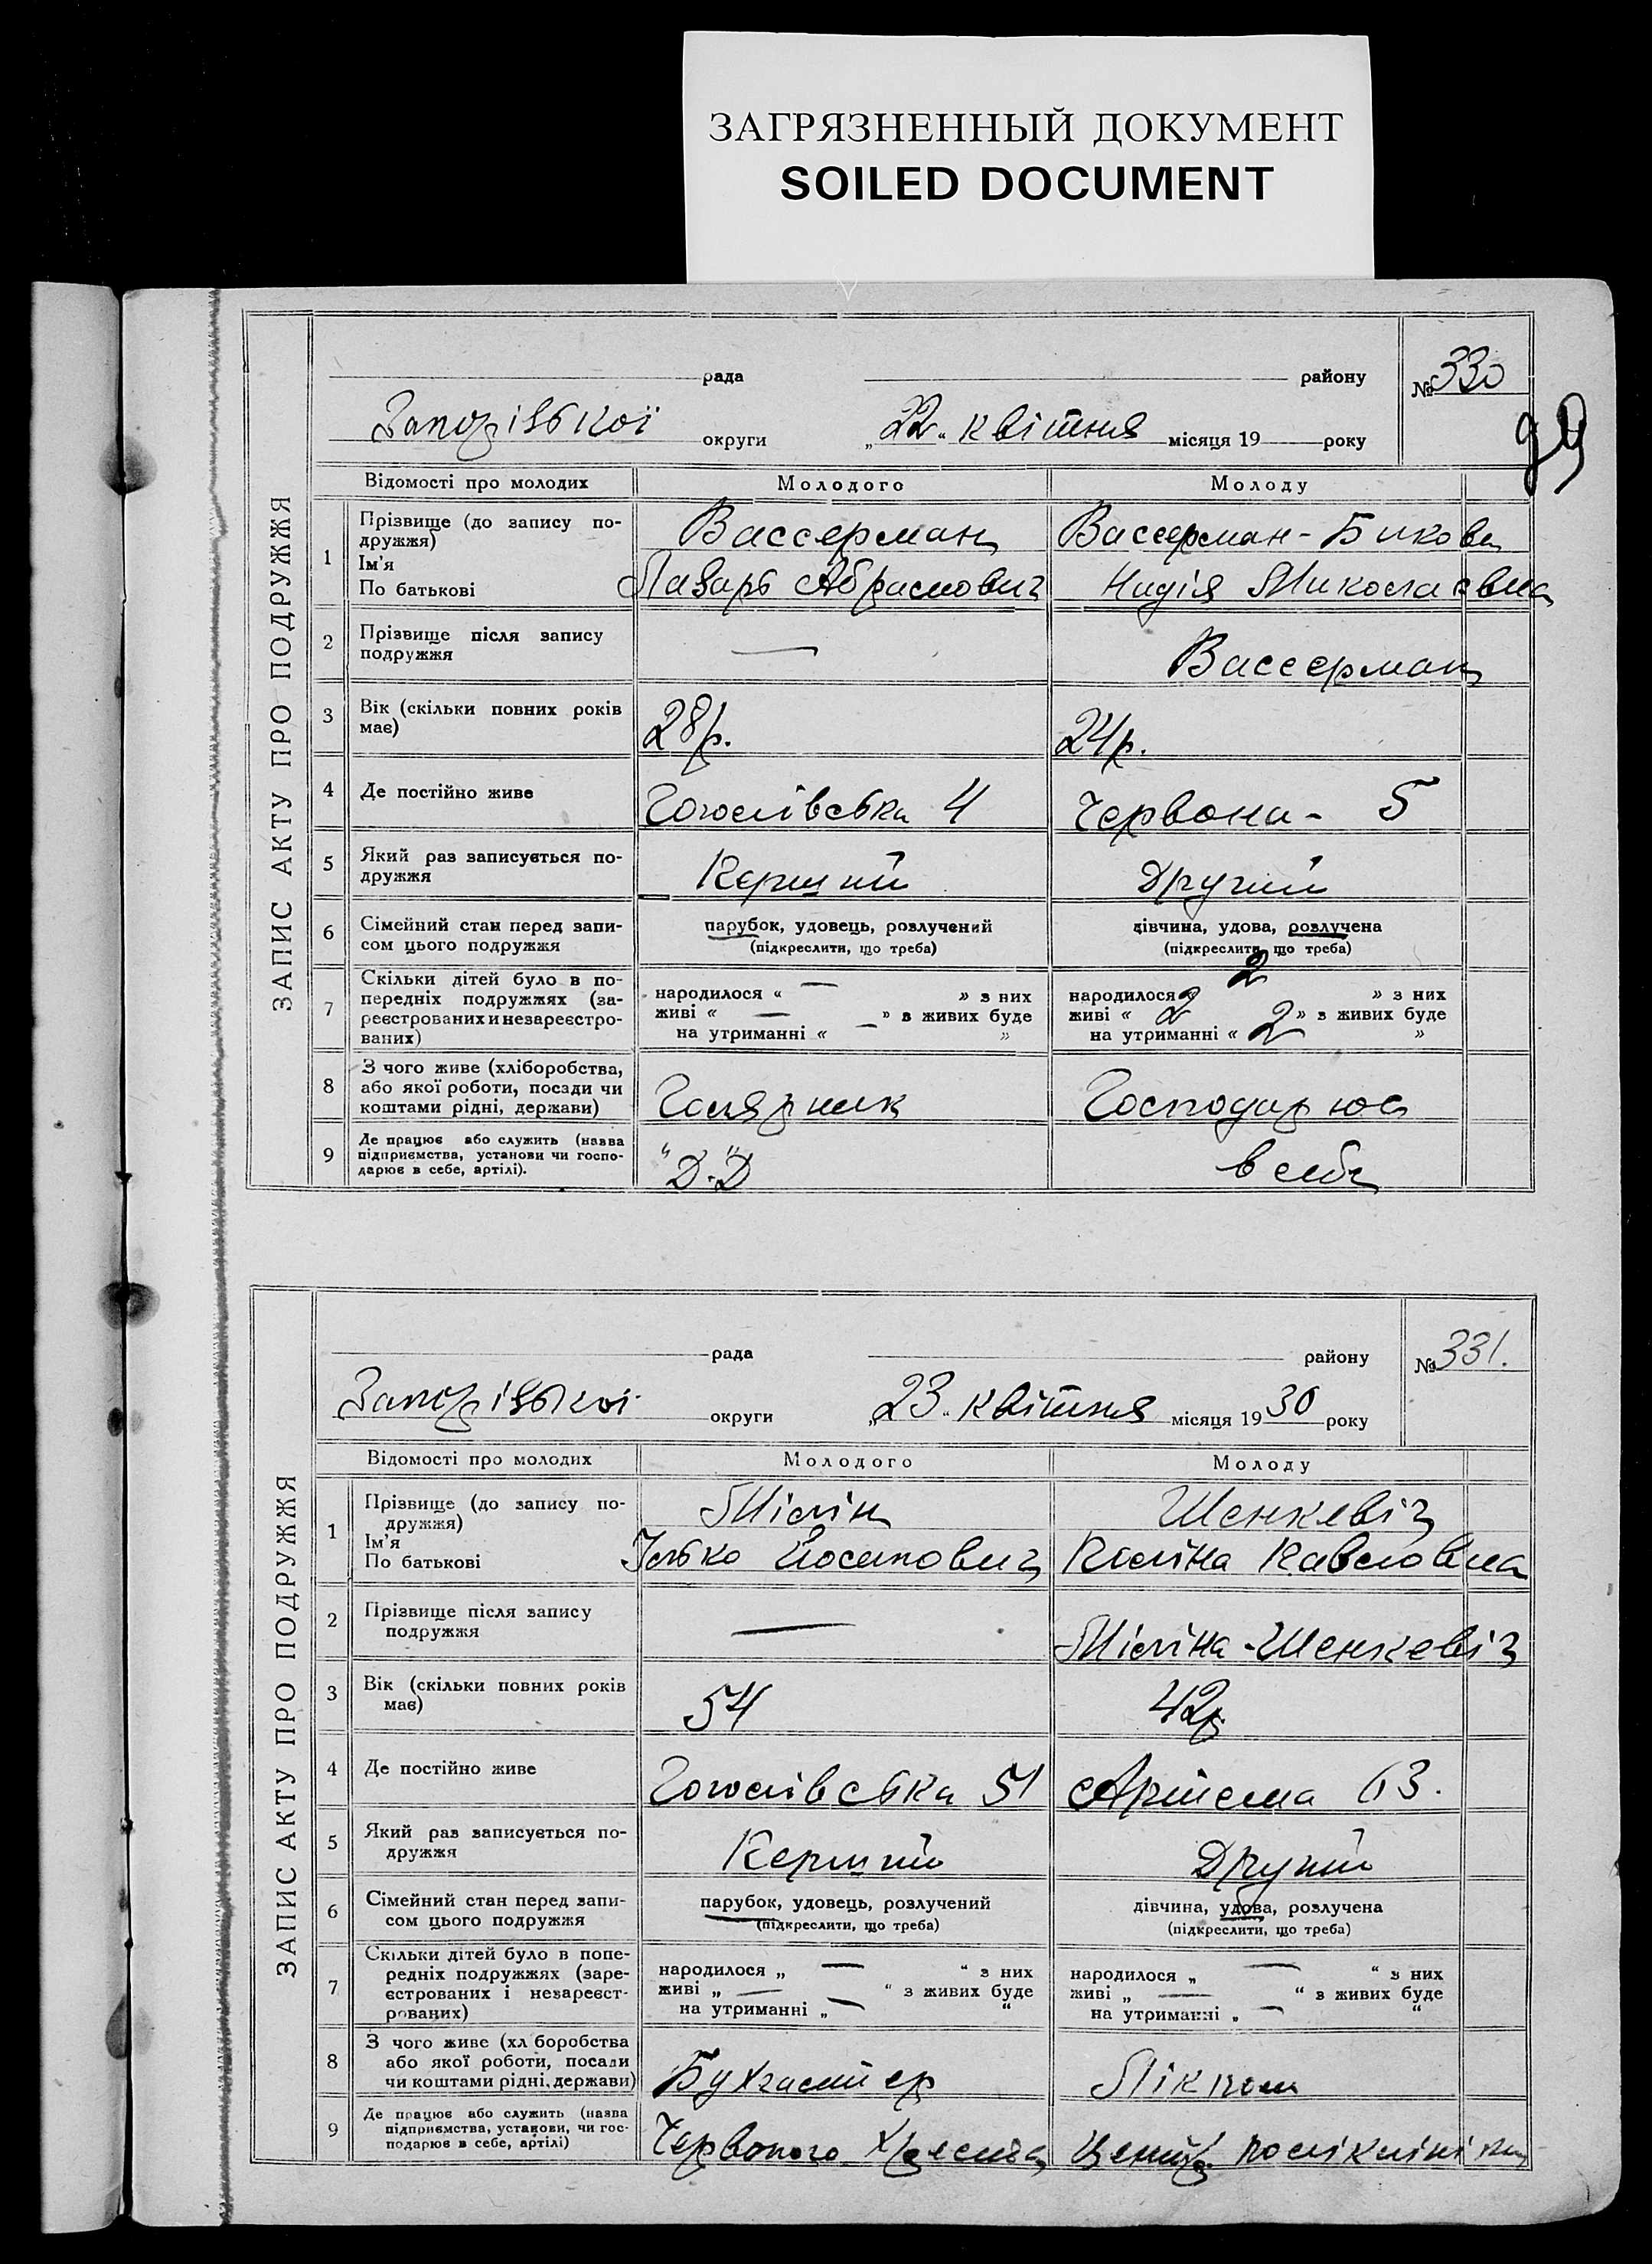 ЗАГРЯЗНЕННЫЙ ДОКУМЕНТ
SOILED DOCUMENT
рада району № 330
округи „22“ квітня місяця 19 року
99
ЗАПИС АКТУ ПРО ПОДРУЖЖЯ
Відомості про молодих Молодого Молоду
1 Прізвище (до запису по-
дружжя) Вассерман Вассерман-Бикова
Ім'я
По батькові Лазарь Абрамович Надія Миколаєвна
2 Прізвище після запису
подружжя — Вассерман
3 Вік (скільки повних років
має) 28 р. 24 р.
4 Де постійно живе Гоголівська 4 Червона - 5
5 Який раз записується по-
дружжя Перший Другий
6 Сімейний стан перед запи-
сом цього подружжя
парубок, удовець, розлучений
(підкреслити, що треба)
дівчина, удова, розлучена
(підкреслити, що треба)
7 Скільки дітей було в по-
передніх подружжях (за-
реєстрованих и незареєстро-
ваних)
народилося « — » з них
живі « — » з живих буде
на утриманні « — »
народилося « 2 » з них
живі « 2 » з живих буде
на утриманні « 2 »
8 З чого живе (хліборобства,
або якої роботи, посади чи
коштами рідні, держави) Господарює
9 Де працює або служить (назва
підприємства, установи чи госпо-
дарює в себе, артілі). "Д.Д" в себе
рада району № 331.
округи „23“ квітня місяця 1930 року
ЗАПИС АКТУ ПРО ПОДРУЖЖЯ
Відомості про молодих Молодого Молоду
1 Прізвище (до запису по-
дружжя) Мілін Шенкевіч
Ім'я
По батькові Ілько Йосипович Павловна
2 Прізвище після запису
подружжя — Міліна-Шенкевіч
3 Вік (скільки повних років
має) 54 42 р.
4 Де постійно живе Гоголівська 51 Артема 63.
5 Який раз записується по-
дружжя Перший Другий
6 Сімейний стан перед запи-
сом цього подружжя
парубок, удовець, розлучений
(підкреслити, що треба)
дівчина, удова, розлучена
(підкреслити, що треба)
7 Скільки дітей було в попе-
редніх подружжях (заре-
єстрованих і незареєст-
рованих)
народилося „ — “ з них
живі „ — “ з живих буде
на утриманні „ — “
народилося „ — “ з них
живі „ — “ з живих буде
на утриманні „ — “
8 З чого живе (хл боробства
або якої роботи, посади
чи коштами рідні, держави) Бухгалтер Лікпом
9 Де працює або служить (назва
підприємства, установи, чи гос-
подарює в себе, артілі) Червоного Хреста поліклініка